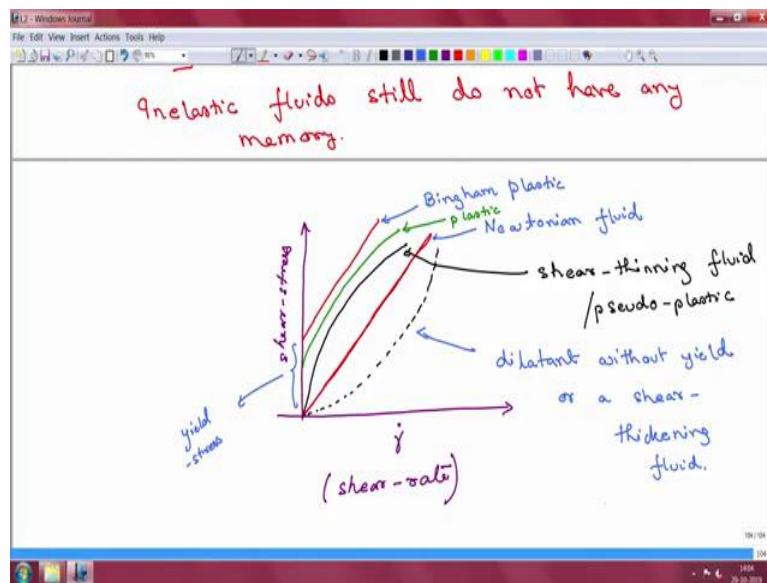 L2 - Windows Journal
File Edit View Insert Actions Tools Help
Inelastic fluids still do not have any
memory.
Bingham plastic
plastic
Newtonian fluid
shear-stress
shear-thinning fluid
/pseudo-plastic
dilatant without yield
or a shear-
thickening
fluid.
yield
-stress
γ̇
(shear-rate)
104/104
104
1404
29-10-2015